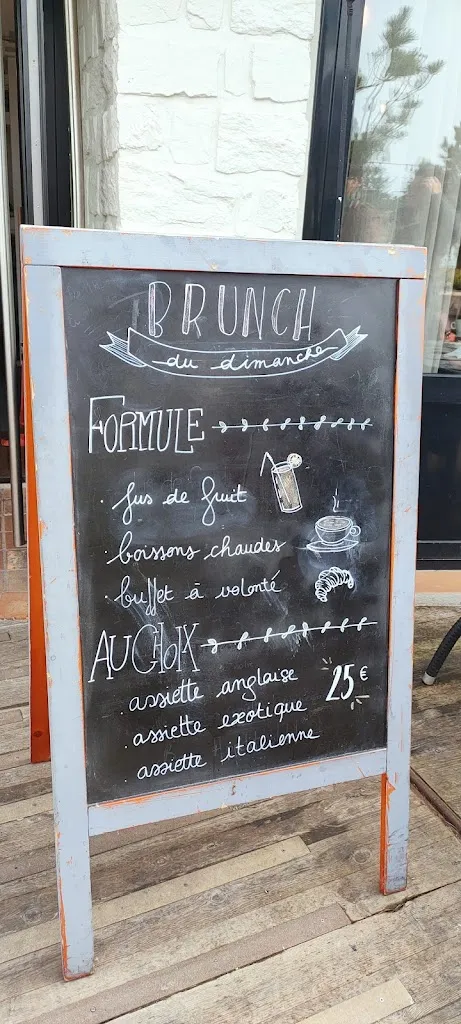 BRUNCH
du dimanche
FORMULE
· jus de fruit
· boissons chaudes
· buffet à volonté
AU CHOIX
· assiette anglaise
· assiette exotique
· assiette italienne
25€